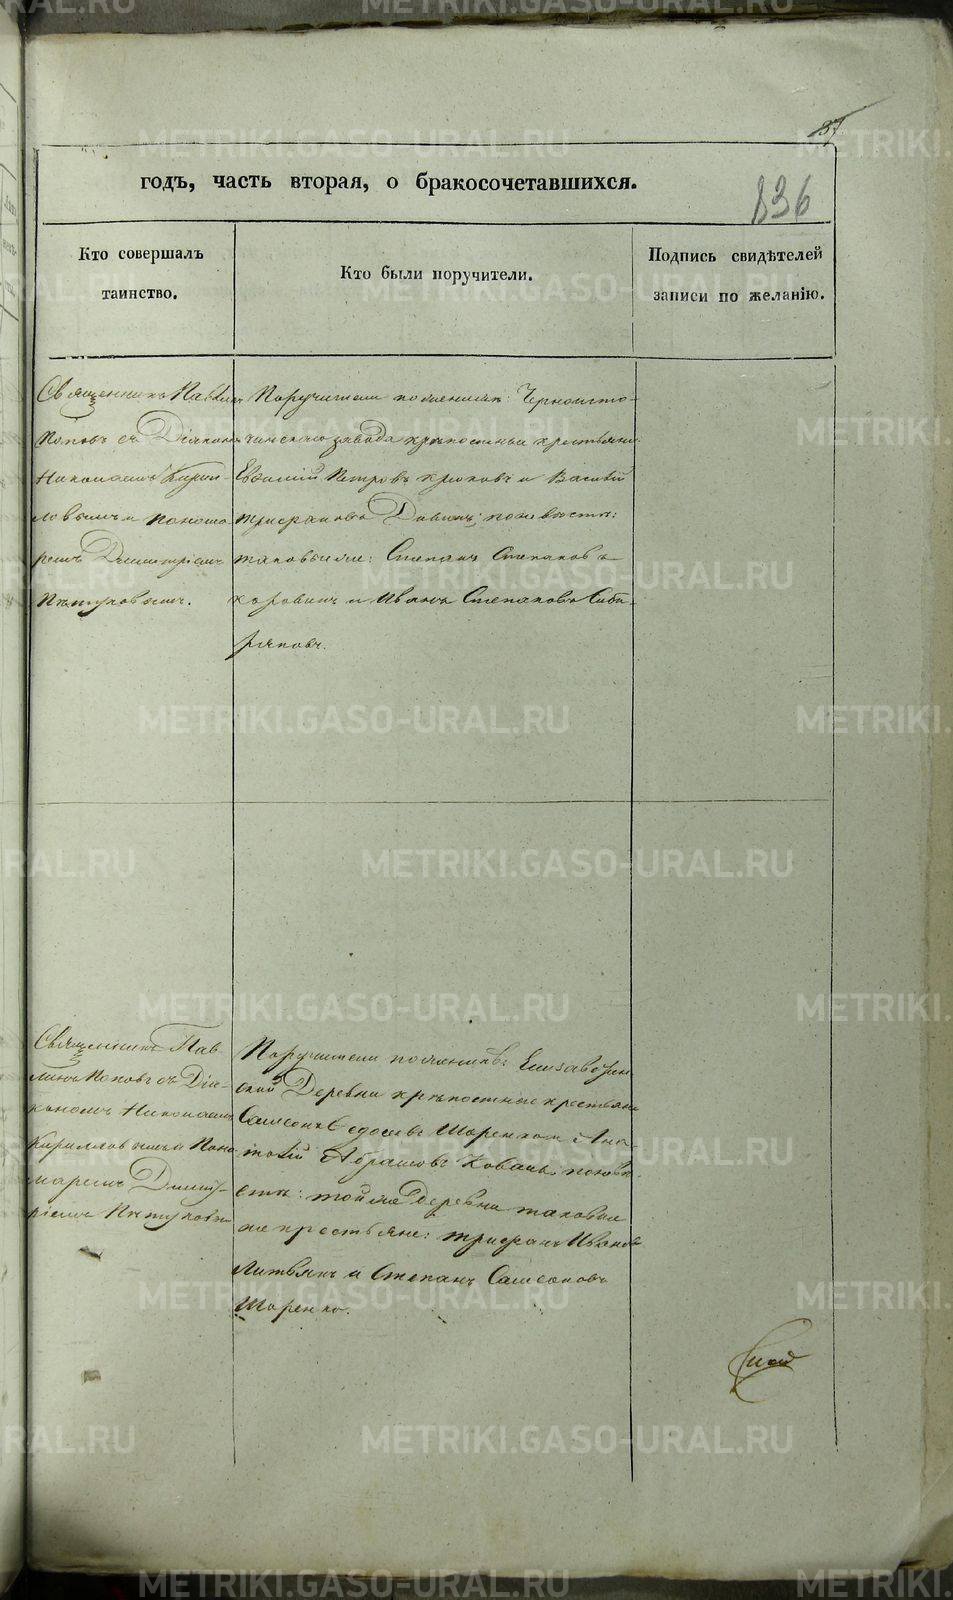 37
годъ, часть вторая, о бракосочетавшихся.
836
Кто совершалъ
таинство.
Кто были поручители.
Подпись свидѣтелей
записи по желанію.
Священникъ Павлинъ
Поповъ съ Діакономъ
Николаемъ Кирил-
ловымъ и понома
ремъ Димитріемъ
Пѣтуховымъ.
Поручители по женихѣ: Черноисто-
чинскаго завода крѣпостные крестьяне
Евѳимій Петровъ Крюковъ и Василій
Трифановъ; по невѣстѣ:
таковые же: Степанъ Степановъ
и Иванъ Степановъ Сиби-
ряковъ.
Священникъ Пав-
линъ Поповъ съ Діа-
кономъ Николаемъ
Кирилловымъ и Поно
маремъ Димит-
ріемъ Пѣтуховым
Поручители по женихѣ: Елизаветин
ской Деревни крѣпостные крестьяне
Самсонъ Едосеев Шаренко и Ана
толій Абрамовъ Коваль, по невѣ
стѣ: той же Деревни таковые
же крестьяне: Трифанъ Ивановъ
Литвякъ и Степанъ Самсоновъ
Шаренко.
METRIKI.GASO-URAL.RU